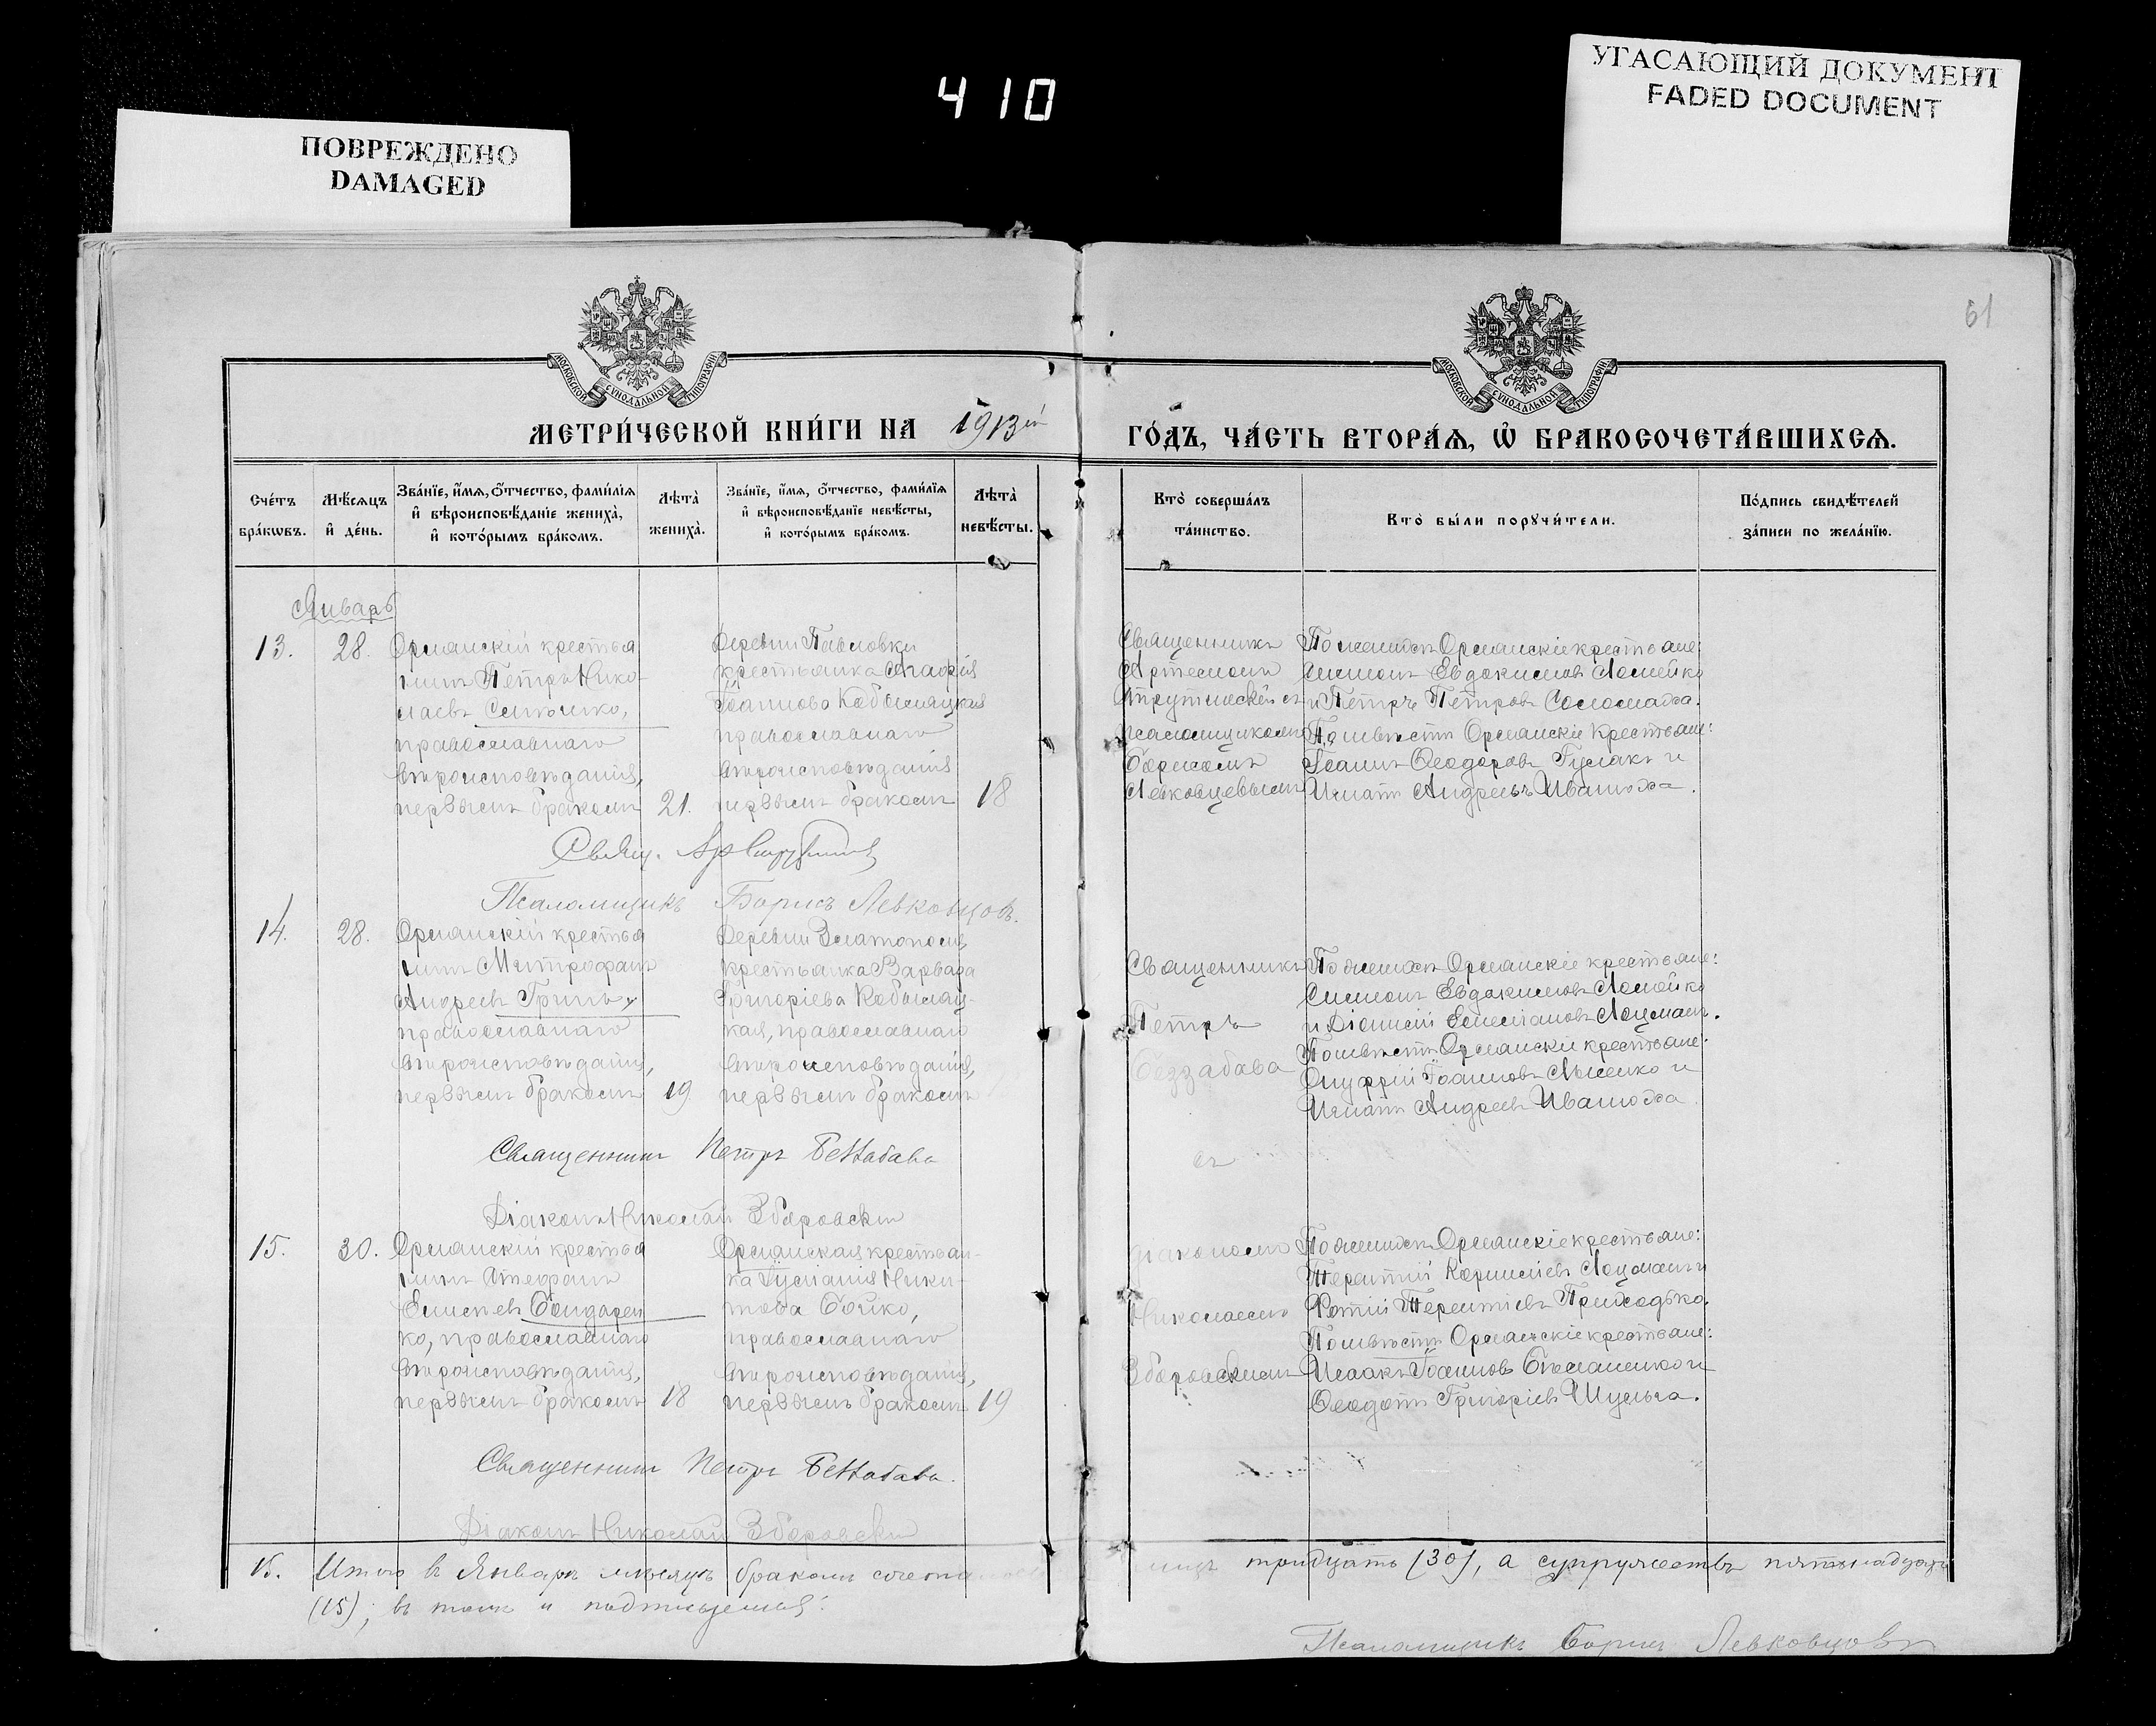 410
ПОВРЕЖДЕНО
DAMAGED
УГАСАЮЩИЙ ДОКУМЕНТ
FADED DOCUMENT
61
МОСКОВСКОЙ СѴНОДАЛЬНОЙ ТИПОГРАФІИ
МОСКОВСКОЙ СѴНОДАЛЬНОЙ ТИПОГРАФІИ
МЕТРИ́ЧЕСКОЙ КНИ́ГИ НА 1913й
ГО́ДЪ, ЧА́СТЬ ВТОРА́Ѧ, Ѽ БРАКОСОЧЕТА́ВШИХСѦ.
Сче́тъ
бра́кѡвъ.
Мѣ́сѧцъ
и҆ де́нь.
Зва́нїе, и҆́мѧ, ѻ҆́тчество, фамилїѧ
и҆ вѣроисповѣ́данїе жениха̀,
и҆ кото́рымъ бра́комъ.
Лѣта̀
жениха̀.
Зва́нїе, и҆́мѧ, ѻ҆́тчество, фами́лїѧ
и҆ вѣроисповѣ́данїе невѣ́сты,
и҆ кото́рымъ бра́комъ.
Лѣта̀
невѣ́сты.
Кто̀ соверша́лъ
та́инство.
Кто̀ бы́ли порꙋчи́тели.
По́дпись свидѣ́телей
за́писи по жела́нїю.
Январь
13.
28.
Орлянскій крестья
нинъ Петръ Нико-
лаевъ Сенько,
православнаго
вѣроисповѣданія,
первымъ бракомъ
21.
Деревни Павловки
крестьянка Агафія
Іоаннова Кобыляцкая
православнаго
вѣроисповѣданія
первымъ бракомъ
18
Священникъ
Артемонъ
съ
псаломщикомъ
Борисомъ
Левковцевымъ
По женихѣ Орлянскіе крестьяне:
Симонъ Евдокимовъ Ломейко
и Петръ Петровъ Соломаха.
По невѣстѣ Орлянскіе крестьяне:
Іоаннъ Ѳеодоровъ Гулакъ и
Игнатъ Андреевъ Иванюха.
Свящ. Ар
Псаломщикъ Борисъ Левковцовъ.
14.
28.
Орлянскій крестья
нинъ Митрофанъ
Андреевъ Гринь,
православнаго
вѣроисповѣданія,
первымъ бракомъ
19
Деревни Златополя,
крестьянка Варвара
Григоріева Кобыляц-
кая, православнаго
вѣроисповѣданія,
первымъ бракомъ
Священникъ
Петръ
Беззабава
съ
По женихѣ Орлянскіе крестьяне:
Симонъ Евдокимовъ Ломейко
и Діонисій Емеліановъ Лоцманъ.
По невѣстѣ Орлянскіе крестьяне:
Онуфрій Іоанновъ Лысенко и
Игнатъ Андреевъ Иванюха
Священникъ Петръ Беззабава
Діаконъ Николай Зборовскій
15.
30.
Орлянскій крестья
нинъ Стефанъ
Елисеевъ Бондарен
ко, православнаго
вѣроисповѣданія,
первымъ бракомъ
18
Орлянская крестьян-
ка Іуліанія Ники-
това Бойко,
православнаго
вѣроисповѣданія,
первымъ бракомъ
19
діакономъ
Николаемъ
Зборовскимъ
По женихѣ Орлянскіе крестьяне:
Терентій Корниліевъ Лоцманъ и
Фотій Терентіевъ Приходько.
По невѣстѣ Орлянскіе крестьяне:
Исаакъ Іоанновъ Емельяненко и
Ѳеодотъ Григоріевъ Шульга.
Священникъ Петръ Беззабава.
Діаконъ Николай Зборовскій
15. Итого въ Январѣ мѣсяцѣ бракомъ сочета лицъ тридцать (30), а супружествъ пятьнадцать
(15), въ томъ и подписуемся:
Псаломщикъ Борисъ Левковцовъ